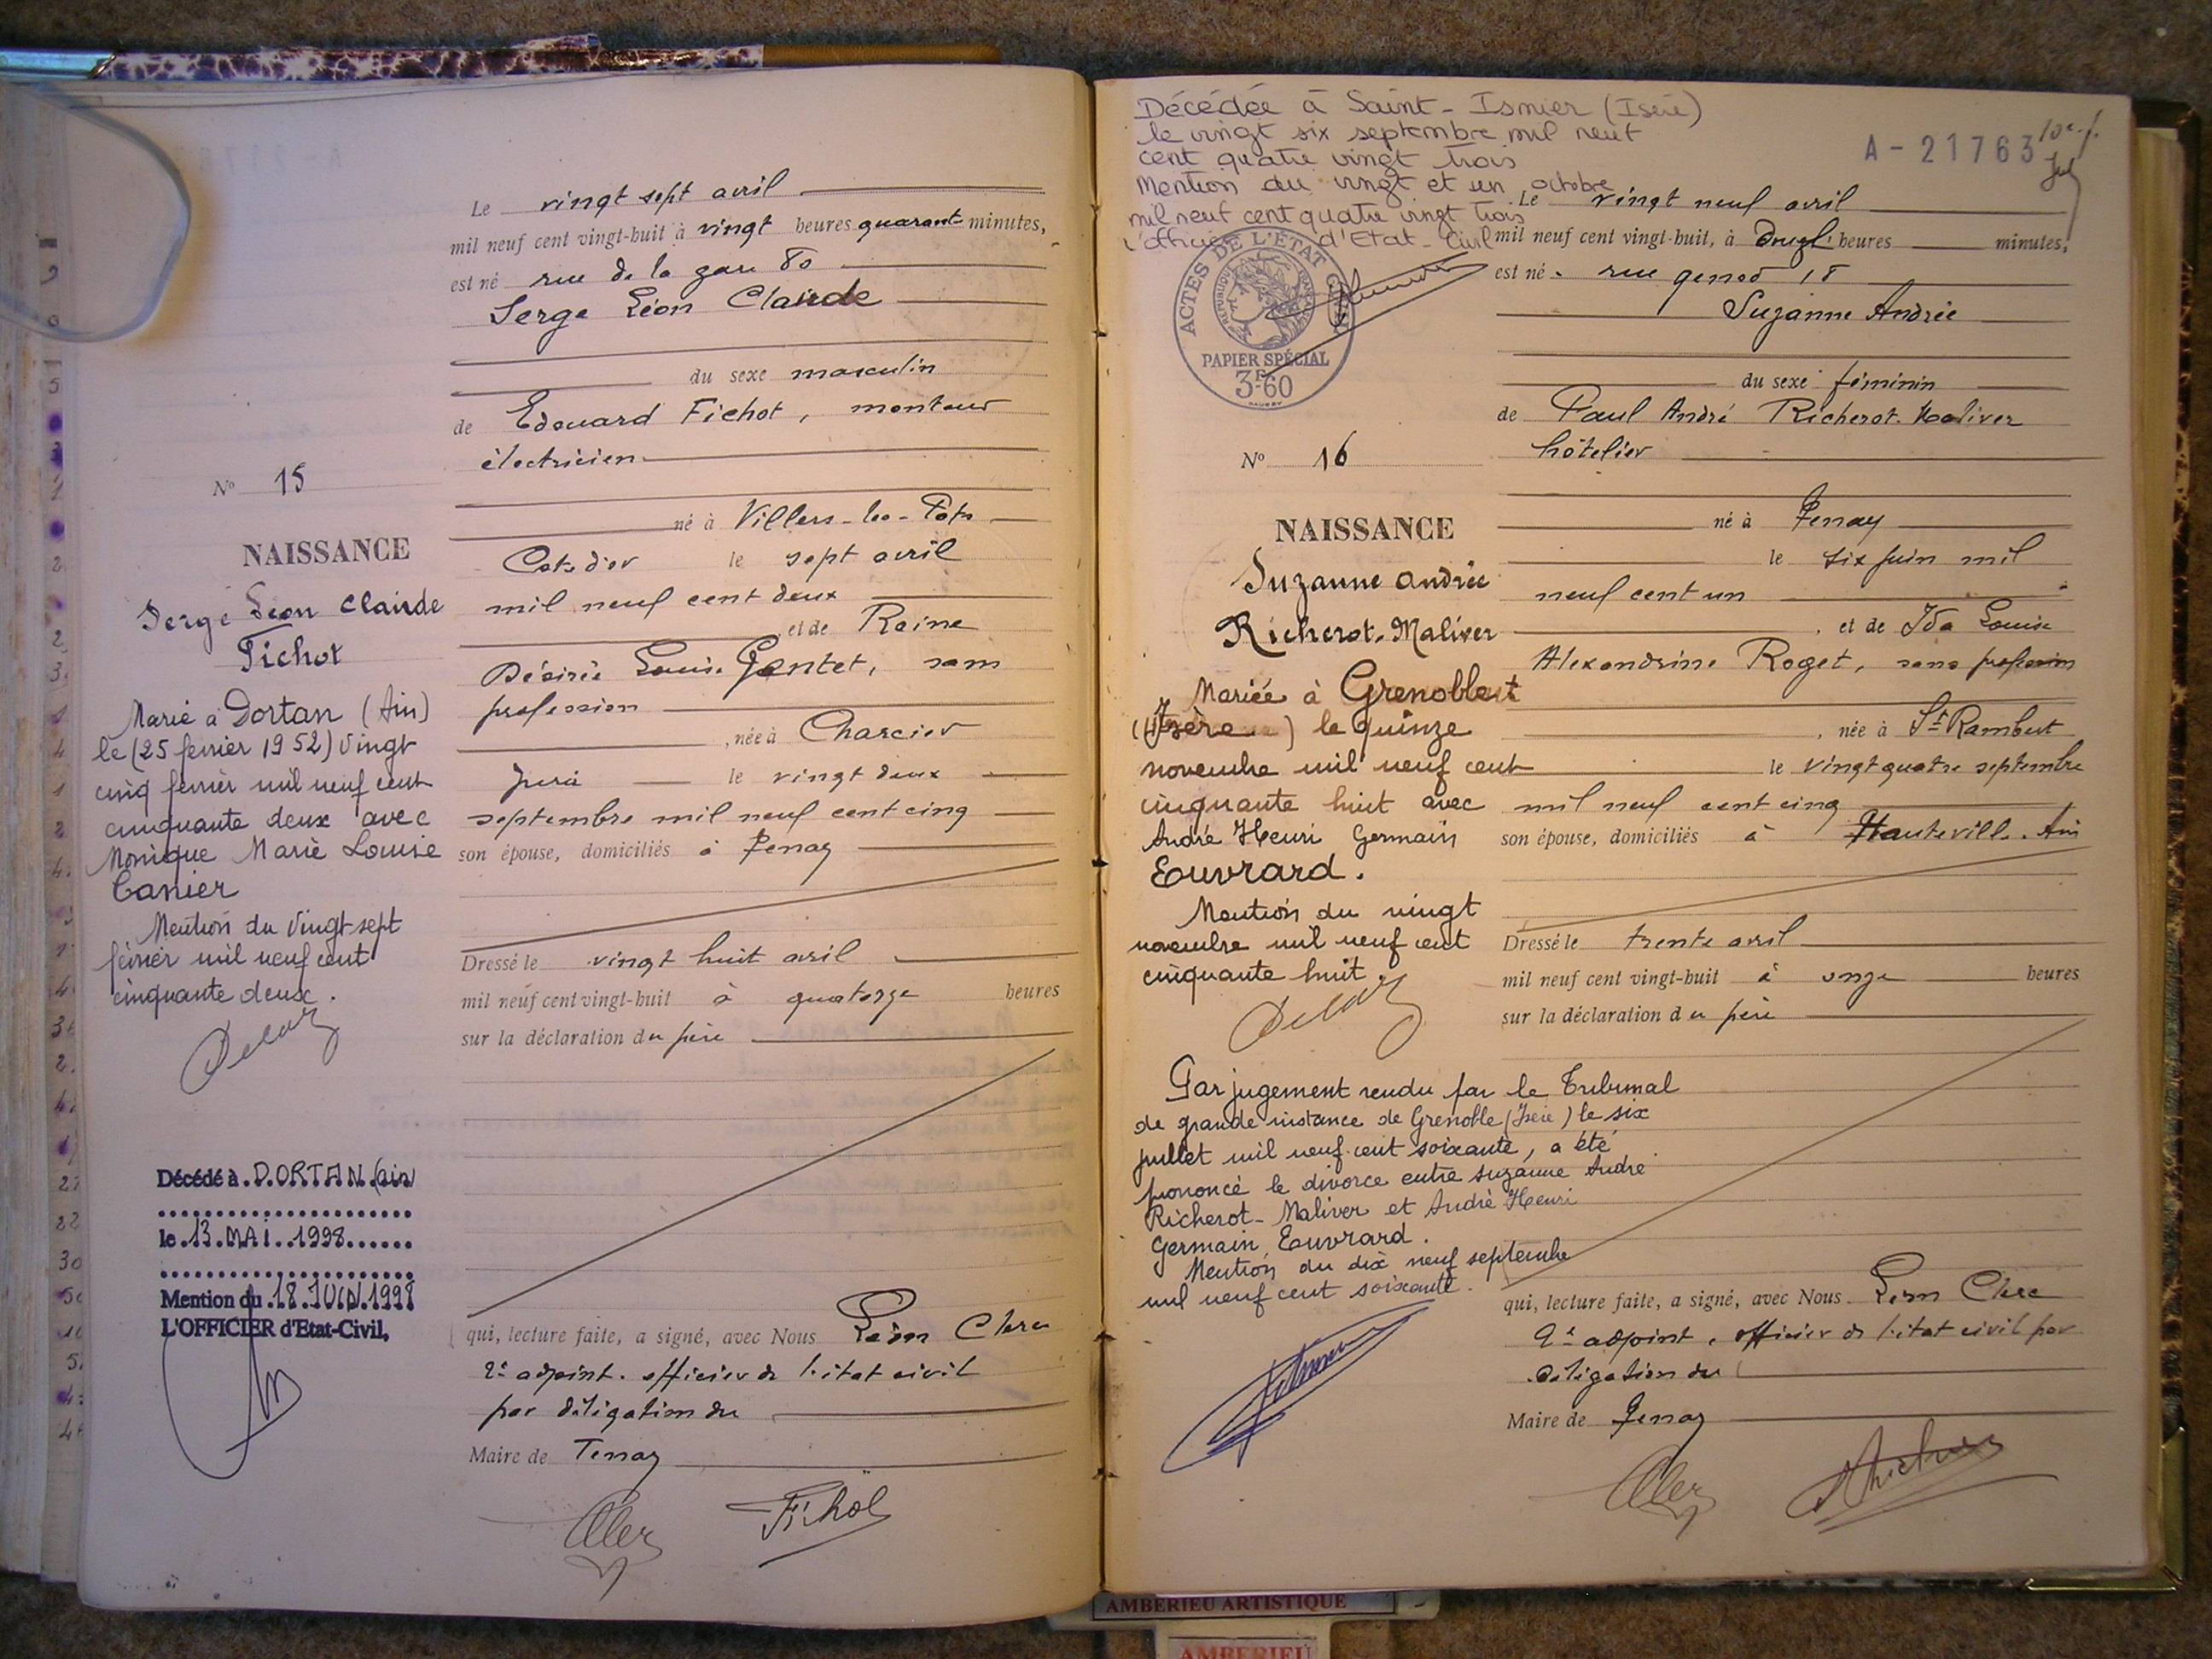 Le vingt sept avril
mil neuf cent vingt-huit à vingt heures quarante minutes,
est né rue de la gare 80
Serge Léon Claude
du sexe masculin
de Edouard Fichot, monteur
électricien
né à Villers-les-Pots
Côte d'or le sept avril
mil neuf cent deux
et de Reine
Désirée Louise Gentet, sans
profession
, née à Charcier
Jura le vingt deux
septembre mil neuf cent cinq
son épouse, domiciliés à Tenay
Dressé le vingt huit avril
mil neuf cent vingt-huit à quatorze heures
sur la déclaration du père
qui, lecture faite, a signé, avec Nous Léon Clerc
2e adjoint, officier de l'état civil
par délégation du
Maire de Tenay
Clerc Fichot
No 15
NAISSANCE
Serge Léon Claude
Fichot
Marié à Dortan (Ain)
le (25 fevrier 1952) vingt
cinq février mil neuf cent
cinquante deux avec
Monique Marie Louise
Canier
Mention du vingt sept
février mil neuf cent
cinquante deux.
Décédé à DORTAN (ain)
le 13 MAI 1998
Mention du 18 JUIN 1998
L'OFFICIER d'Etat-Civil,
Décédée à Saint-Ismier (Isère)
le vingt six septembre mil neuf
cent quatre vingt trois
Mention du vingt et un octobre
mil neuf cent quatre vingt trois
l'officier d'Etat-Civil
ACTES DE L'ÉTAT CIVIL
REPUBLIQUE FRANÇAISE
PAPIER SPÉCIAL
3F60
A-21763
No 16
NAISSANCE
Suzanne Andrée
Richerot-Maliver
Mariée à Grenoble
(Isère) le quinze
novembre mil neuf cent
cinquante huit avec
André Henri Germain
Euvrard.
Mention du vingt
novembre mil neuf cent
cinquante huit.
Par jugement rendu par le Tribunal
de grande instance de Grenoble (Isère) le six
juillet mil neuf cent soixante, a été
prononcé le divorce entre Suzanne André
Richerot-Maliver et André Henri
Germain Euvrard.
Mention du dix neuf septembre
mil neuf cent soixante.
Le vingt neuf avril
mil neuf cent vingt-huit, à douze heures minutes,
est né rue genod 18
Suzanne Andrée
du sexe féminin
de Paul André Richerot-Maliver
hôtelier
né à Tenay
le six juin mil
neuf cent un
, et de Ida Louise
Alexandrine Roget, sans profession
, née à St Rambert
le vingt quatre septembre
mil neuf cent cinq
son épouse, domiciliés à Hauteville. Ain
Dressé le trente avril
mil neuf cent vingt-huit à onze heures
sur la déclaration du père
qui, lecture faite, a signé, avec Nous Léon Clerc
2e adjoint, officier de l'état civil par
délégation du
Maire de Tenay
Clerc
AMBERIEU ARTISTIQUE
AMBERIEU